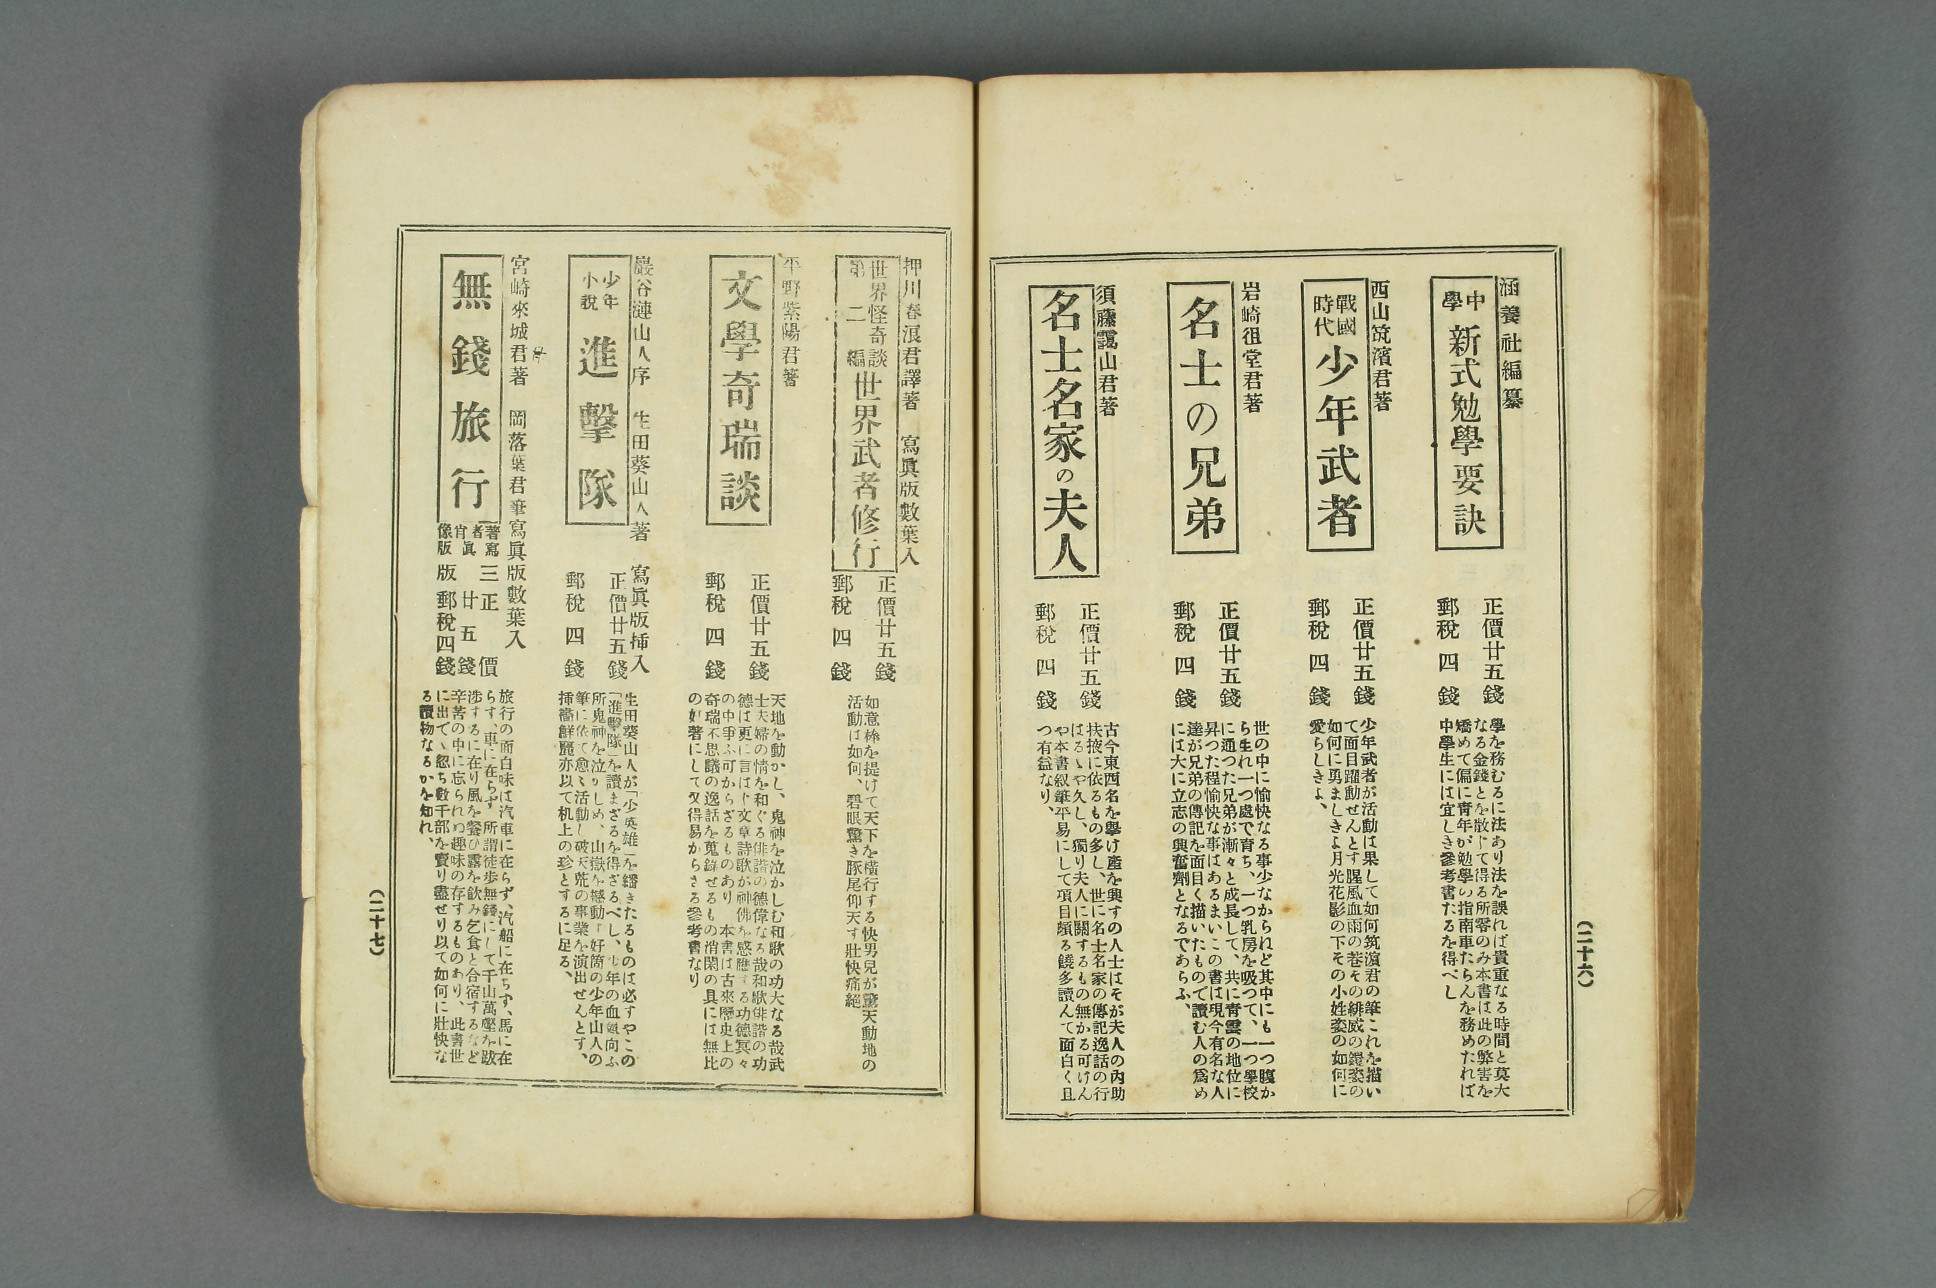 涵養社編纂
中學 新式勉學要訣
正價廿五錢
郵稅四錢
學を務むるに法あり法を誤れば貴重なる時間と莫大
なる金錢とを散じて得る所零のみ本書は此の弊害を
矯めて偏に靑年が勉學の指南車たらんを務めたれば
中學生には宜しき參考書たるを得べし
西山筑濱君著
戰國時代 少年武者
正價廿五錢
郵稅四錢
少年武者が活動は果して如何筑濱君の筆これを描い
て面目躍動せんとす腥風血雨の巷その緋威の鎧姿の
如何に勇ましきよ月光花影の下その小姓姿の如何に
愛らしきよ、
岩崎徂堂君著
名士の兄弟
正價廿五錢
郵稅四錢
世の中に愉快なる事少なかられど其中にも一つ腹か
ら生れ一つ處で育ち、一つ乳房を吸つて、一つ學校
に通つた兄弟が漸々と成長して、共に靑雲の地位に
昇つた程愉快な事はあるまいこの書は現今有名な人
達が兄弟の傳記を面目く描いたもので讀む人の爲め
には大に立志の興奮劑となるであらふ、
須藤靄山君著
名士名家の夫人
正價廿五錢
郵稅四錢
古今東西名を擧げ產を興すの人士はそが夫人の內助
扶掖に依るもの多し、世に名士名家の傳記逸話の行
はるゝや久し、獨り夫人に關するもの無かる可けん
や本書叙筆平易にして項目頗る饒多讀んで面白く且
つ有益なり、
(二十六)
押川春浪君譯著 寫眞版數葉入
世界怪奇談第二編 世界武者修行
正價廿五錢
郵稅四錢
如意棒を提げて天下を橫行する快男兒が驚天動地の
活動は如何、碧眼驚き豚尾仰天す壯快痛絕
平野紫陽君著
文學奇瑞談
正價廿五錢
郵稅四錢
天地を動かし、鬼神を泣かしむ和歌の功大なる哉武
士夫婦の情を和ぐる俳諧の德偉なる哉和歌俳諧の功
德は更に言はず文章詩歌が神佛を感應する功德冥々
の中爭ふ可からざるものあり本書は古來歷史上の
奇瑞不思議の逸話を蒐錄せるもの消閑の具には無比
の好著にして又得易からざる參考書なり
巖谷漣山人序 生田葵山人著 寫眞版挿入
少年小說 進擊隊
正價廿五錢
郵稅四錢
生田葵山人が「少英雄」を繙きたるものは必ずやこの
「進擊隊」を讀まざるを得ざるべし、少年の血氣向ふ
所鬼神を泣かしめ、山嶽を撼動す好箇の少年山人の
筆に依て愈々活動し破天荒の事業を演出せんとす、
挿畵鮮麗亦以て机上の珍とするに足る、
宮崎來城君著 岡落葉君畫 寫眞版數葉入
無錢旅行
著者肖像寫眞版三版
正價廿五錢
郵稅四錢
旅行の面白味は汽車に在らず、汽船に在らず、馬に在
らず、車に在らず所謂徒步無錢にして千山萬壑を跋
涉するに在り風を餐ひ露を飮み乞食と合宿するなど
辛苦の中に忘られぬ趣味の存するものあり、此書世
に出でゝ忽ち數千部を賣り盡せり以て如何に壯快な
る讀物なるかを知れ、
(二十七)